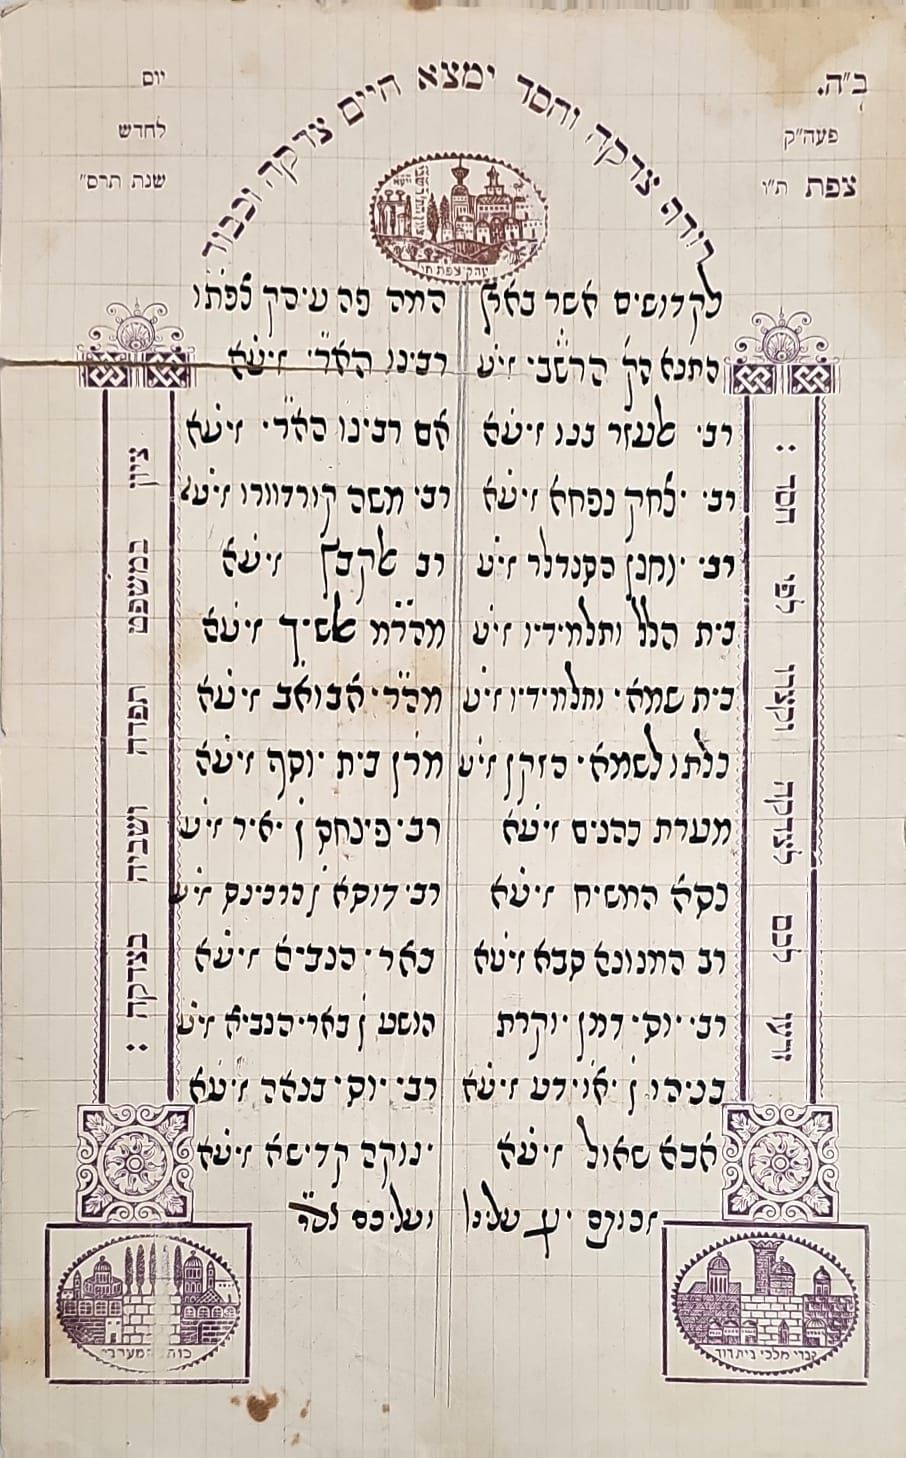 ב"ה.
פעה"ק
צפת ת"ו
יום
לחדש
שנת תרס"
רודף צדקה וחסד ימצא חיים צדקה וכבוד
עהק צפת תו
לקדושים אשר בארץ המה פה עיהק צפת תו
התנא הק' הרשב"י זיע רבינו האר"י זיעא
רבי אלעזר בנו זיעא אם רבינו האר"י זיעא
רבי יצחק נפחא זיעא רבי משה קורדווירו זיעא
רבי יוחנן הסנדלר זיע רב אלקבץ זיעא
בית הלל ותלמידיו זיע מהר"מ אלשיך זיעא
בית שמאי ותלמידיו זיע מהר"י אבואב זיעא
כלתו לשמאי הזקן זיע מרן בית יוסף זיעא
מערת כהנים זיעא רבי פינחס ן' יאיר זיע
כסא המשיח זיעא רבי דוסא ן הרכינס זיע
רב המנונא סבא זיעא בארי הנביא זיעא
רבי יוסי דמן יוקרת הושע ן בארי הנביא זיע
בניהו ן יאוידע זיעא רבי יוסי בנאה זיעא
אבא שאול זיעא ינוקה קדישא זיעא
זכותם יגן עלינו ועליכם
ציון במשפט תפדה ושביה בצדקה :
זרעו לכם לצדקה וקצרו לפי חסד :
כותל מערבי
קברי מלכי בית דוד